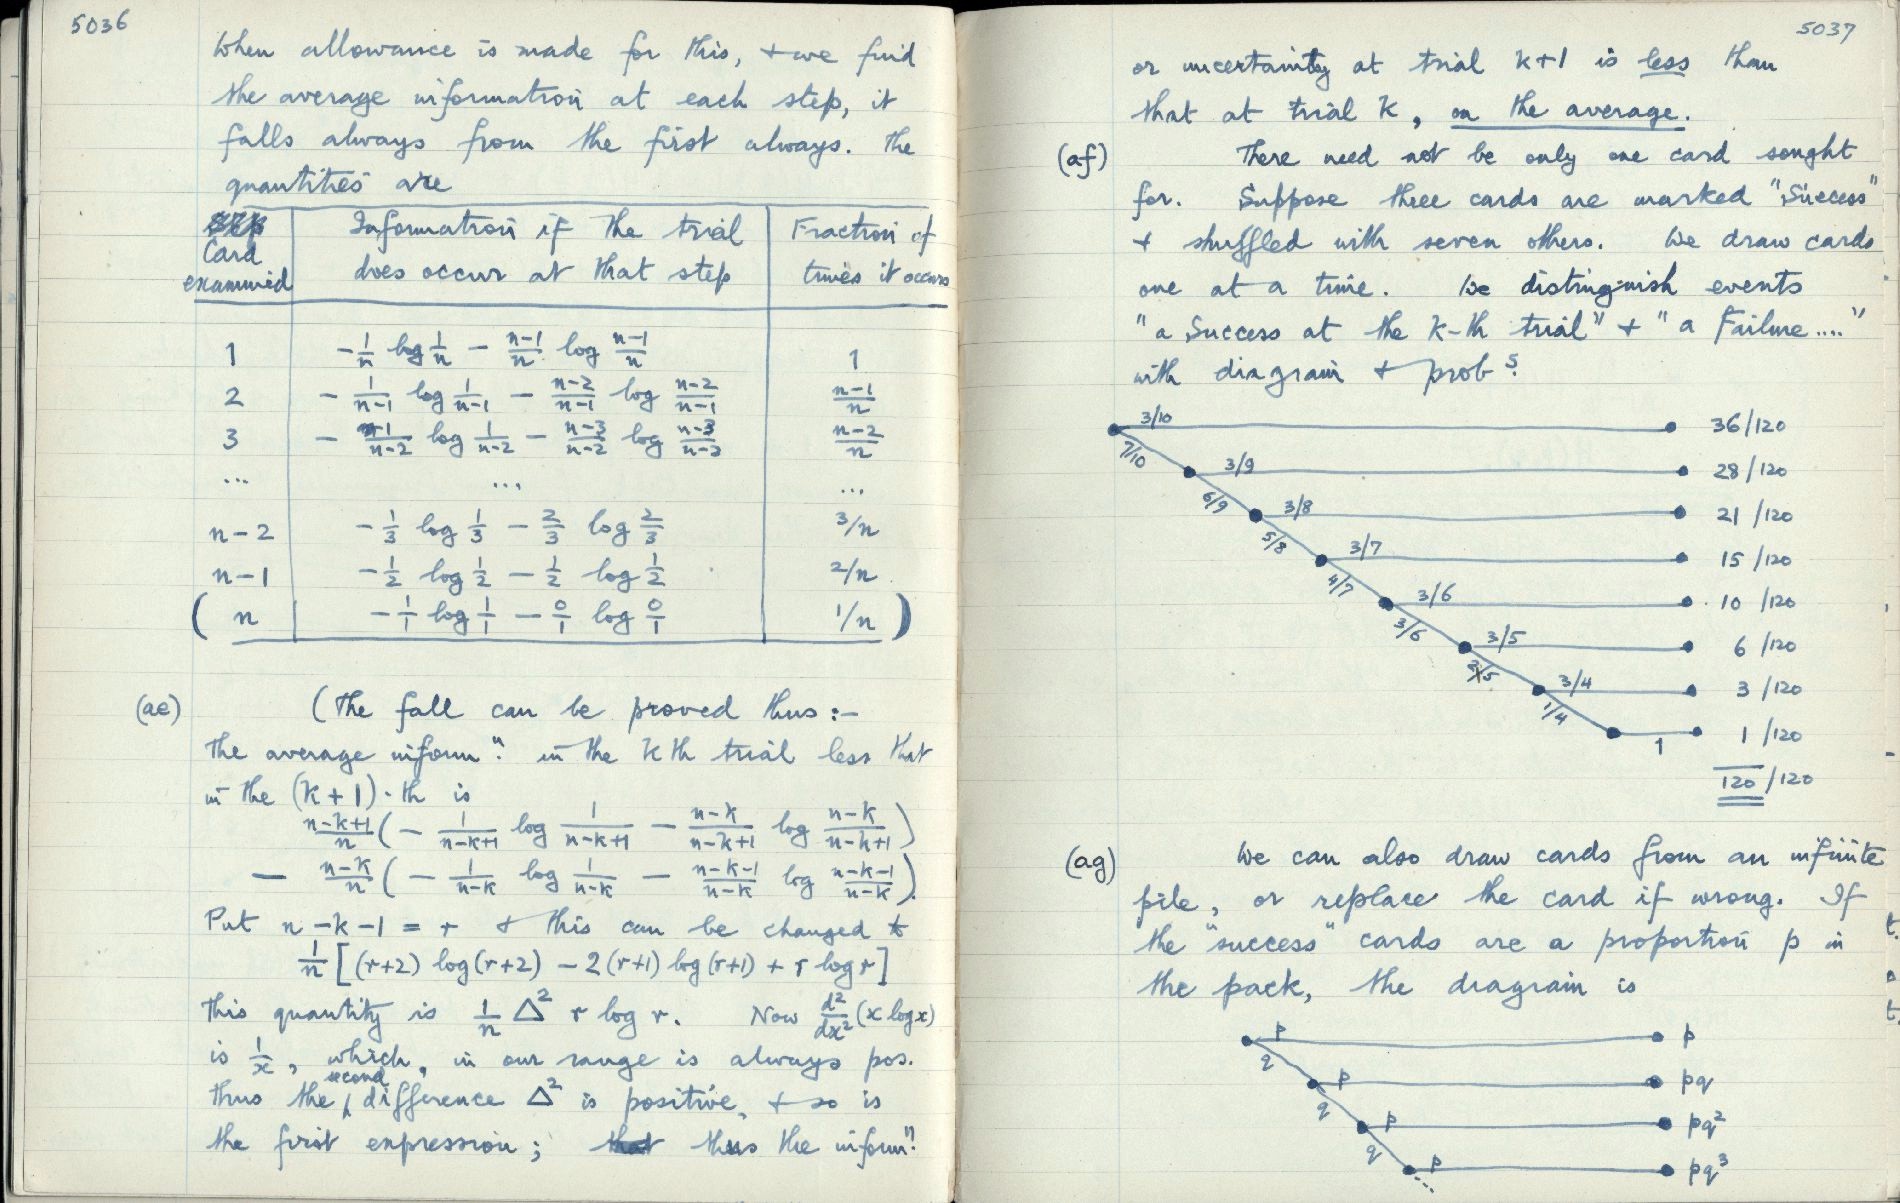 5036
When allowance is made for this, + we find
the average information at each step, it
falls always from the first always. The
quantities are
Card examined | Information if the trial does occur at that step | Fraction of times it occurs
1 | -1/n log 1/n - (n-1)/n log (n-1)/n | 1
2 | -1/(n-1) log 1/(n-1) - (n-2)/(n-1) log (n-2)/(n-1) | (n-1)/n
3 | -1/(n-2) log 1/(n-2) - (n-3)/(n-2) log (n-3)/(n-2) | (n-2)/n
... | ... | ...
n-2 | -1/3 log 1/3 - 2/3 log 2/3 | 3/n
n-1 | -1/2 log 1/2 - 1/2 log 1/2 | 2/n
( n | -1/1 log 1/1 - 0/1 log 0/1 | 1/n )
(ae) (The fall can be proved thus :-
The average informⁿ. in the kth trial less that
in the (k+1)·th is
(n-k+1)/n ( - 1/(n-k+1) log 1/(n-k+1) - (n-k)/(n-k+1) log (n-k)/(n-k+1) )
- (n-k)/n ( - 1/(n-k) log 1/(n-k) - (n-k-1)/(n-k) log (n-k-1)/(n-k) ).
Put n-k-1 = r + this can be changed to
1/n [(r+2) log(r+2) - 2(r+1) log(r+1) + r log r]
This quantity is 1/n Δ² r log r. Now d²/dx² (x log x)
is 1/x, which, in our range is always pos.
Thus the second difference Δ² is positive, + so is
the first expression; thus the informⁿ.
5037
or uncertainity at trial k+1 is less than
that at trial k, on the average.
(af) There need not be only one card sought
for. Suppose three cards are marked "Success"
+ shuffled with seven others. We draw cards
one at a time. We distinguish events
"a Success at the k-th trial" + "a Failure...."
with diagram + probˢ.
3/10 36/120
7/10
3/9 28/120
6/9
3/8 21/120
5/8
3/7 15/120
4/7
3/6 10/120
3/6
3/5 6/120
2/5
3/4 3/120
1/4
1 1/120
120/120
(ag) We can also draw cards from an infinite
pile, or replace the card if wrong. If
the "success" cards are a proportion p in
the pack, the diagram is
p p
q
p pq
q
p pq²
q
p pq³
...